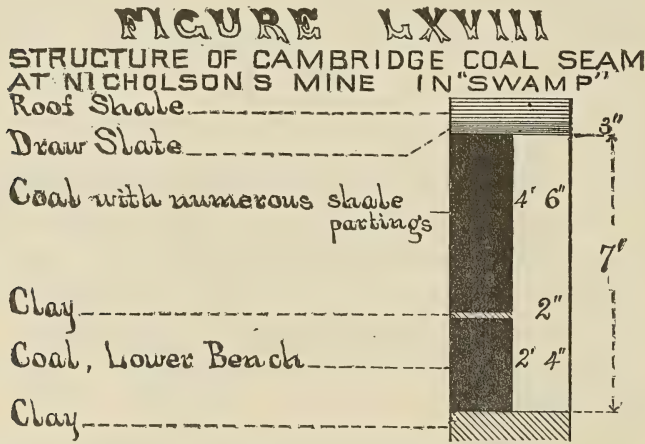 FIGURE LXVIII
STRUCTURE OF CAMBRIDGE COAL SEAM
AT NICHOLSONS MINE IN "SWAMP"
Roof Shale
Draw Slate
3"
Coal with numerous shale
partings
4' 6"
7'
Clay
2"
Coal, Lower Bench
2' 4"
Clay